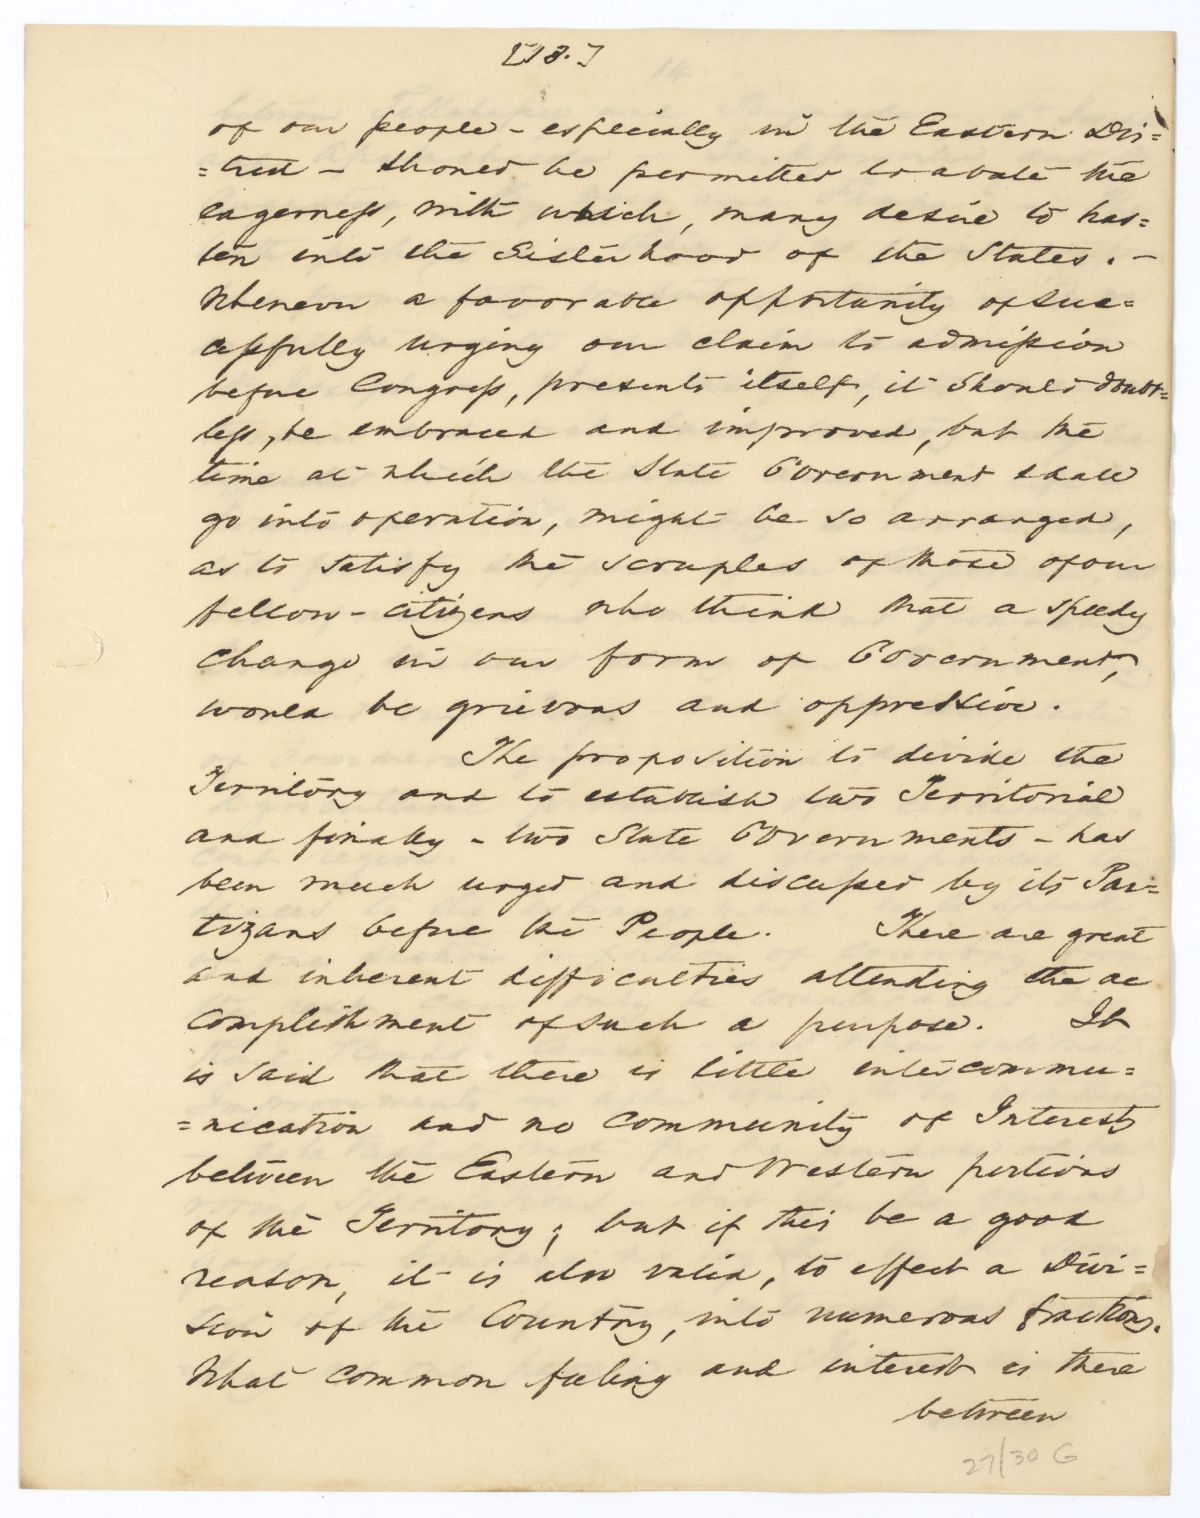 [13.]
of our people - especially in the Eastern Dis=
=trict - should be permitted to abate the
eagerness, with which, many desire to has=
ten into the Sisterhood of the States. -
Whenever a favorable opportunity of suc=
cessfully urging our claim to admission
before Congress, presents itself, it should doubt=
less, be embraced and improved, but the
time at which the State Government shall
go into operation, might be so arranged,
as to satisfy the scruples of those of our
fellow-citizens who think that a speedy
change in our form of Government,
would be grievous and oppressive.
The proposition to divide the
Territory and to establish two Territorial
and finally - two State Governments - has
been much urged and discussed by its Par=
tizans before the People. There are great
and inherent difficulties attending the ac
complishment of such a purpose. It
is said that there is little intercommu=
=nication and no community of Interests
between the Eastern and Western portions
of the Territory; but if this be a good
reason, it is also valid, to effect a Divi=
sion of the Country, into numerous fractions.
What common feeling and interest is there
between
27/30 G